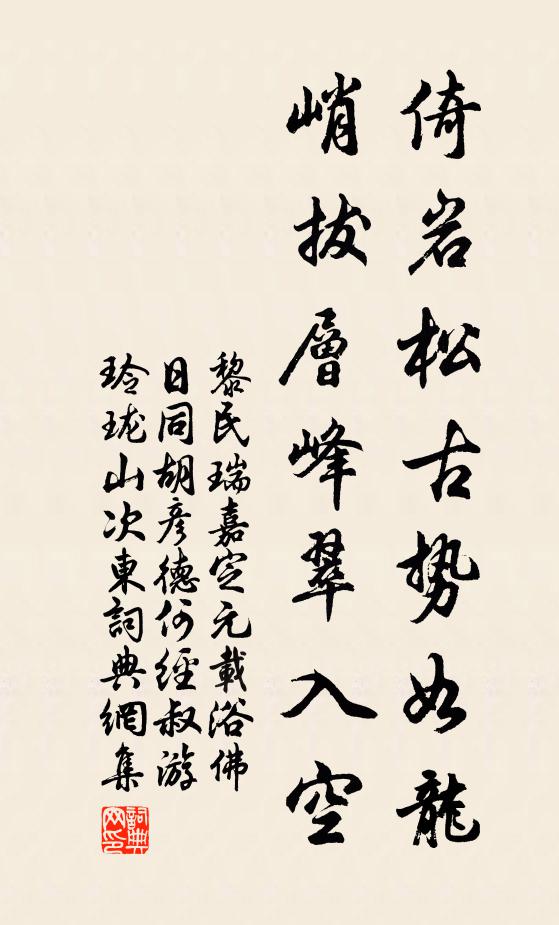 倚岩松古势如龍
峭拔層峰翠入空
黎民瑞嘉定元載浴佛
日同胡彥德何經叔游
玲珑山次東詞典網集
詞典
网印